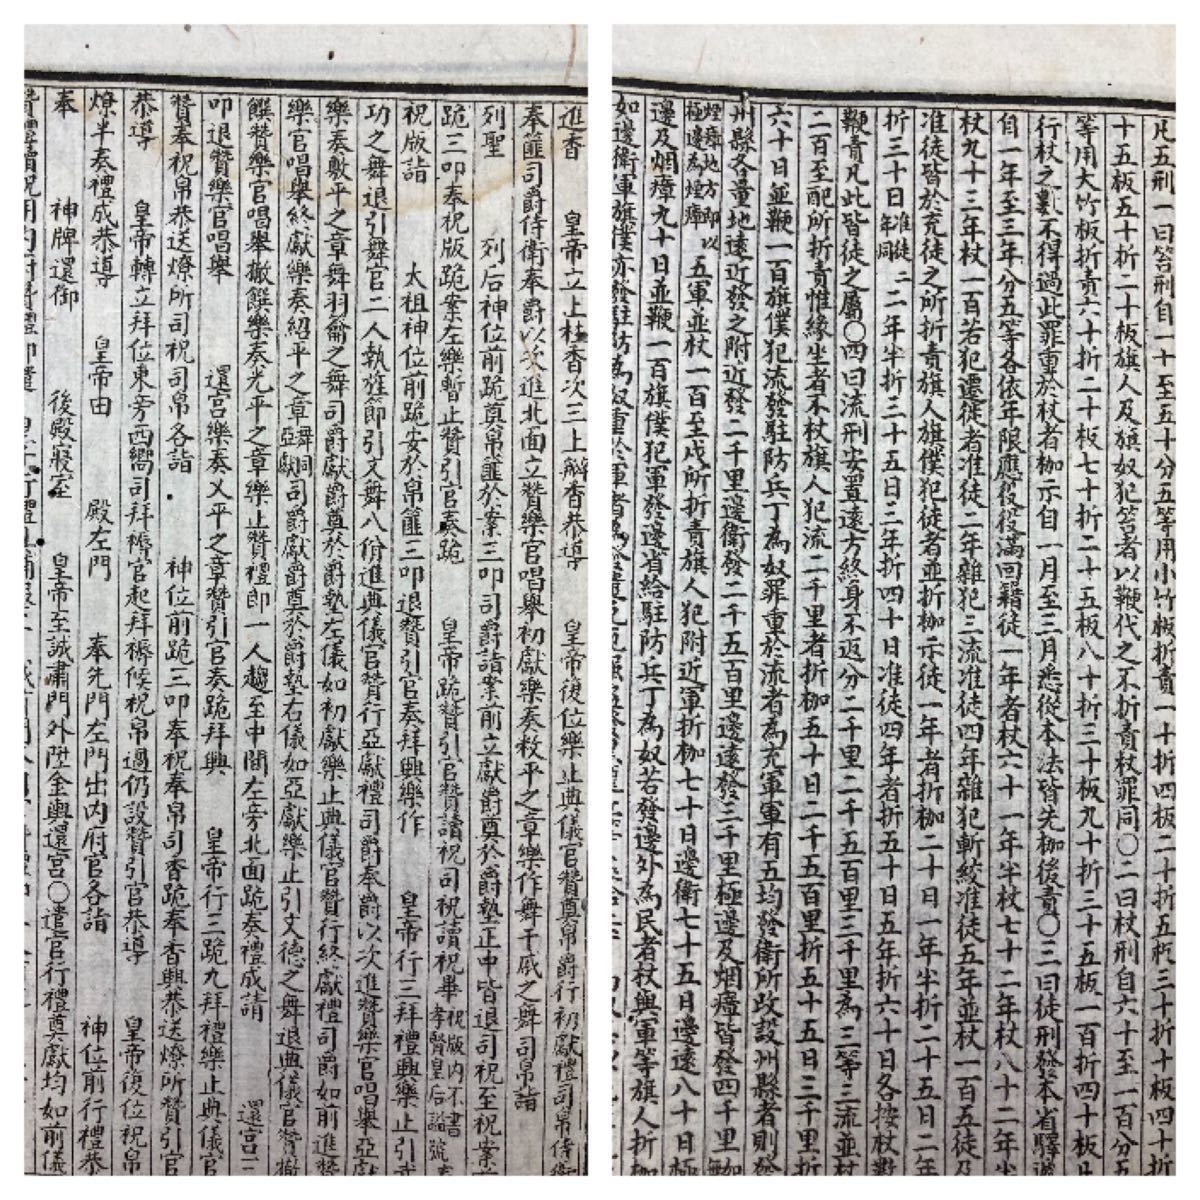 凡五刑一曰笞刑自一十至五十分五等用小竹板折責一十折四板二十折五板三十折十板四十折
十五板五十折二十板旗人及旗奴犯笞者以鞭代之不折責杖罪同〇二曰杖刑自六十至一百分五
等用大竹板折責六十折二十板七十折二十五板八十折三十板九十折三十五板一百折四十板
行杖之數不得過此罪重於杖者枷示自一月至三月悉從本法皆先枷後責〇三曰徒刑發本省驛
自一年至三年分五等各依年限應役役滿回籍徒一年者杖六十一年半杖七十二年杖八十二年半
杖九十三年杖一百若犯遷徙者准徒二年雜犯三流准徒四年雜犯斬絞准徒五年並杖一百五徒及
准徒皆於充徒之所折責旗人旗僕犯徒者並折枷示徒一年者折枷二十日一年半折二十五日二年
折三十日二年半折三十五日三年折四十日准徒四年者折五十日五年折六十日各按杖數
鞭責凡此皆徒之屬〇四曰流刑安置遠方終身不返分二千里二千五百里三千里為三等三流並杖
一百至配所折責惟緣坐者不杖旗人犯流二千里者折枷五十日二千五百里折五十五日三千里折
六十日並鞭一百旗僕犯流發駐防兵丁為奴罪重於流者為充軍軍有五均發衛所改設州縣者則發
州縣各量地遠近發之附近發二千里邊衛發二千五百里邊遠發三千里極邊及烟瘴皆發四千里
極邊為煙瘴 以 五軍並杖一百至戍所折責旗人犯附近軍折枷七十日邊衛七十五日邊遠八十日極
邊及烟瘴九十日並鞭一百旗僕犯軍發邊省給駐防兵丁為奴若發邊外為民者杖與軍等旗人折枷
如邊衛軍旗僕亦發駐防為奴重於軍者為發遣
進香 皇帝立上柱香次三上瓣香恭導 皇帝復位樂止典儀官贊奠帛爵行初獻禮司帛侍衛
奉篚司爵侍衛奉爵以次進北面立贊樂官唱舉初獻樂奏敉平之章樂作舞干戚之舞司帛詣
列聖 列后神位前跪奠帛篚於案三叩司爵詣案前立獻爵奠於爵墊正中皆退司祝至祝案
跪三叩奉祝版跪案左樂暫止贊引官奏跪 皇帝跪贊引官贊讀祝司祝讀祝畢祝版內不書孝賢皇后謚號
祝版詣 太祖神位前跪安於帛篚三叩退贊引官奏拜興樂作 皇帝行三拜禮興樂止引武
功之舞退引舞官二人執旌節引文舞八佾進典儀官贊行亞獻禮司爵奉爵以次進贊樂官唱舉亞獻
樂奏敷平之章舞羽籥之舞司爵獻爵奠於爵墊左儀如初獻樂止典儀官贊行終獻禮司爵如前進贊
樂官唱舉終獻樂奏紹平之章舞同亞獻司爵獻爵奠於爵墊右儀如亞獻樂止引文德之舞退典儀官贊撤
饌贊樂官唱舉撤饌樂奏光平之章樂止贊禮郎一人趨至中間左旁北面跪奏禮成請 還宮三
叩退贊樂官唱舉 還宮樂奏乂平之章贊引官奏跪拜興 皇帝行三跪九拜禮樂止典儀官
贊奉祝帛恭送燎所司祝司帛各詣 神位前跪三叩奉祝奉帛司香跪奉香興恭送燎所贊引官
恭導 皇帝轉立拜位東旁西嚮司拜褥官起拜褥候祝帛過仍設贊引官恭導 皇帝復位祝帛
燎半奏禮成恭導 皇帝由 殿左門 奉先門左門出內府官各詣 神位前行禮恭
奉 神牌還御 後殿寢室 皇帝至誠肅門外陞金輿還宮〇遣官行禮奠獻均如前儀